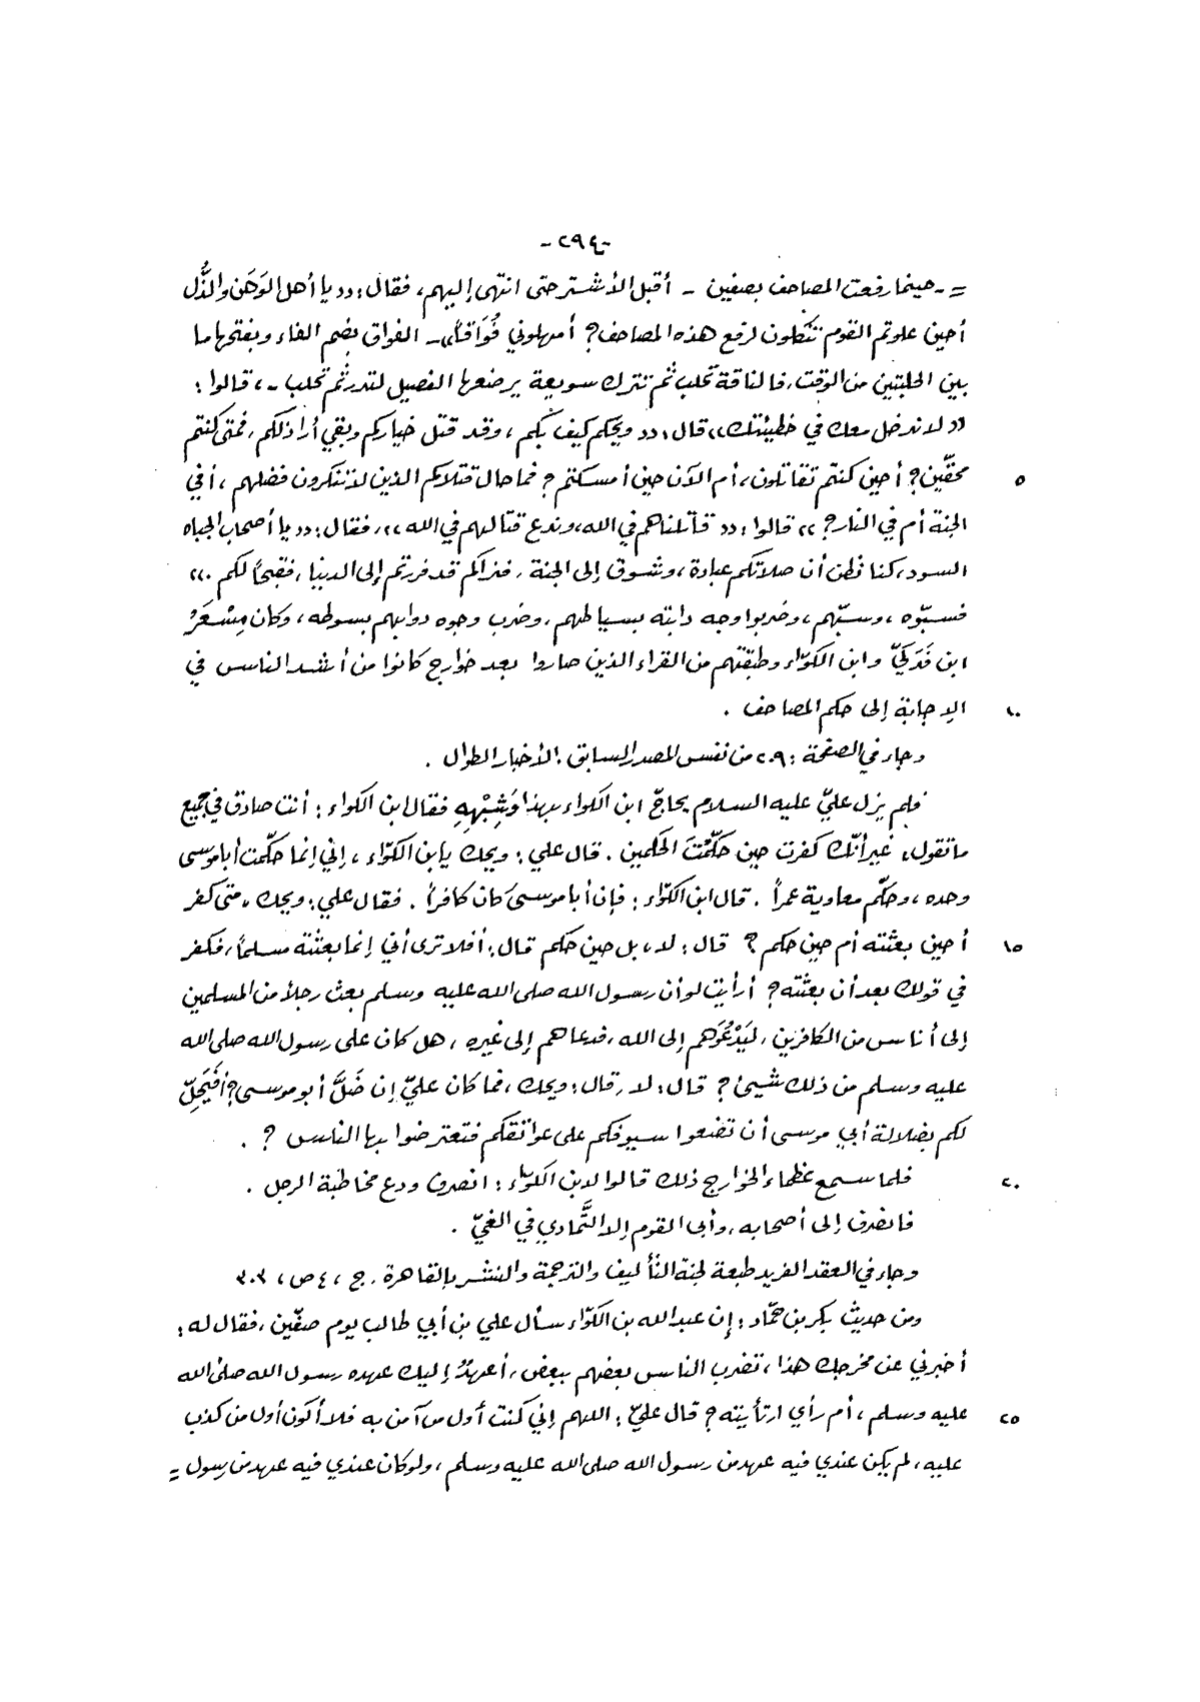 -٢٩٤-
= - حينما رفعت المصاحف بصفين - أقبل الأشتر حتى انتهى إليهم، فقال: «يا أهل الوَهَن والذُّل
أحين علوتم القوم تنكلون لرفع هذه المصاحف؟ أمهلوني فُوَاقاً» - الفواق بضم الفاء وبفتحها ما
بين الحلبتين من الوقت، فالناقة تحلب ثم تترك سويعة يرضعها الفصيل لتدر ثم تحلب -، قالوا:
«لا ندخل معك في خطيئتك» قال: «ويحكم كيف بكم، وقد قتل خياركم وبقي أراذلكم، فمتى كنتم
٥ محقّين؟ أحين كنتم تقاتلون، أم الآن حين أمسكتم؟ فما حال قتلاكم الذين لا تنكرون فضلهم، أفي
الجنة أم في النار؟» قالوا: «قاتلناهم في الله، وندع قتالهم في الله»، فقال: «يا أصحاب الجباه
السود، كنا نظن أن صلاتكم عبادة، وشوق إلى الجنة، فنراكم قد فررتم إلى الدنيا، فقبحاً لكم».
فسبّوه، وسبّهم، وضربوا وجه دابته بسياطهم، وضرب وجوه دوابهم بسوطه، وكان مِسْعَرُ
ابن فَدَكيّ وابن الكوّاء وطبقتهم من القراء الذين صاروا بعد خوارج كانوا من أشد الناس في
١٠ الإجابة إلى حكم المصاحف.
وجاء في الصفحة: ٢٠٩ من نفس المصدر السابق: الأخبار الطوال.
فلم يزل عليّ عليه السلام يحاجّ ابن الكواء بهذا وَشِبْهِهِ فقال ابن الكواء: أنت صادق في جميع
ما تقول، غير أنّك كفرت حين حكّمْتَ الحكمين. قال علي: ويحك يا بن الكوّاء، إني إنما حكّمت أبا موسى
وحده، وحكّم معاوية عمراً. قال ابن الكوّاء: فإن أبا موسى كان كافراً. فقال علي: ويحك، متى كفر
١٥ أحين بعثته أم حين حكم؟ قال: لا، بل حين حكم قال: أفلا ترى أني إنما بعثته مسلماً، فكفر
في قولك بعد أن بعثته؟ أرأيت لو أن رسول الله صلى الله عليه وسلم بعث رجلاً من المسلمين
إلى أناس من الكافرين، ليَدْعُوَهم إلى الله، فدعاهم إلى غيره، هل كان على رسول الله صلى الله
عليه وسلم من ذلك شيئ؟ قال: لا، قال: ويحك، فما كان عليّ إن ضَلَّ أبو موسى؟ أفَيَحِلّ
لكم بضلالة أبي موسى أن تضعوا سيوفكم على عواتقكم فتعترضوا بها الناس؟.
٢٠ فلما سمع عظماء الخوارج ذلك قالوا لابن الكوّاء: انصرف ودع مخاطبة الرجل.
فانصرف إلى أصحابه، وأبى القوم إلا التَّمادي في الغيّ.
وجاء في العقد الفريد طبعة لجنة التأليف والترجمة والنشر بالقاهرة. ج، ٤ ص، ٣٠٣
ومن حديث بكر بن حمّاد: إن عبد الله بن الكوّاء سأل علي بن أبي طالب يوم صفّين، فقال له:
أخبرني عن مخرجك هذا، تضرب الناس بعضهم ببعض، أعهدٌ إليك عهده رسول الله صلى الله
٢٥ عليه وسلم، أم رأي ارتأيته؟ قال عليّ: اللهم إني كنت أول من آمن به فلا أكون أول من كذب
عليه، لم يكن عندي فيه عهد من رسول الله صلى الله عليه وسلم، ولو كان عندي فيه عهد من رسول =